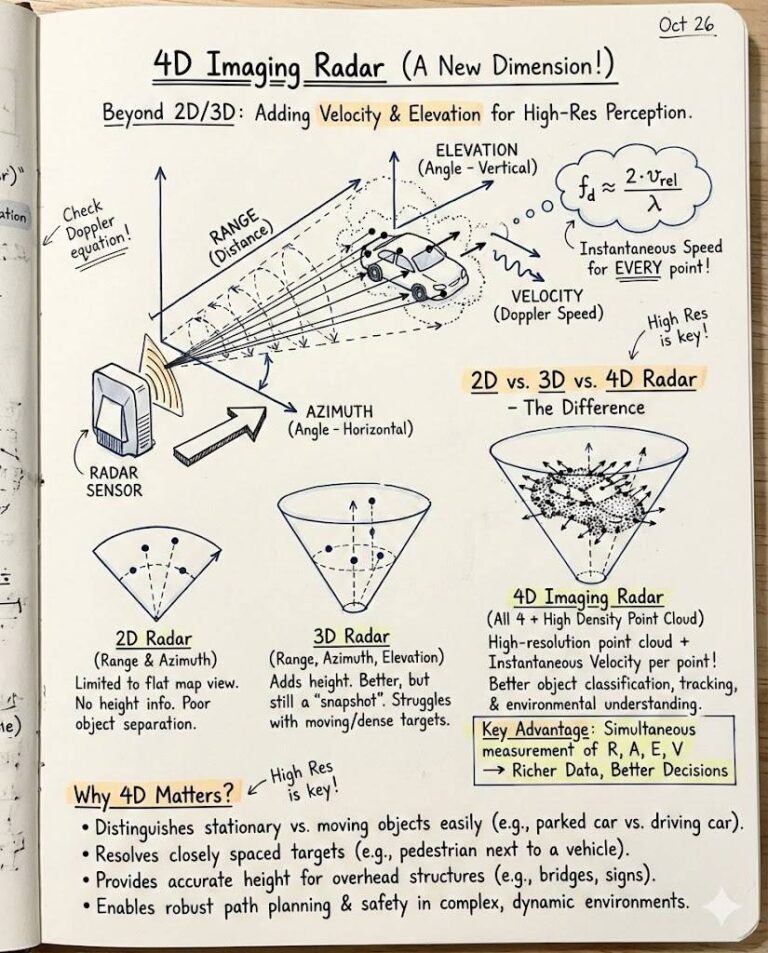 Oct 26
4D Imaging Radar (A New Dimension!)
Beyond 2D/3D: Adding Velocity & Elevation for High-Res Perception.
ELEVATION
(Angle – Vertical)
f_d ≈ 2·v_rel / λ
Check
Doppler
equation!
RANGE
(Distance)
Instantaneous Speed
for EVERY point!
VELOCITY
(Doppler Speed)
High Res
is key!
AZIMUTH
(Angle – Horizontal)
RADAR
SENSOR
2D vs. 3D vs. 4D Radar
– The Difference
2D Radar
(Range & Azimuth)
Limited to flat map view.
No height info. Poor
object separation.
3D Radar
(Range, Azimuth, Elevation)
Adds height. Better, but
still a "snapshot". Struggles
with moving/dense targets.
4D Imaging Radar
(All 4 + High Density Point Cloud)
High-resolution point cloud +
Instantaneous Velocity per point!
Better object classification, tracking,
& environmental understanding.
Key Advantage: Simultaneous
measurement of R, A, E, V
→ Richer Data, Better Decisions
Why 4D Matters?
High Res
is key!
• Distinguishes stationary vs. moving objects easily (e.g., parked car vs. driving car).
• Resolves closely spaced targets (e.g., pedestrian next to a vehicle).
• Provides accurate height for overhead structures (e.g., bridges, signs).
• Enables robust path planning & safety in complex, dynamic environments.